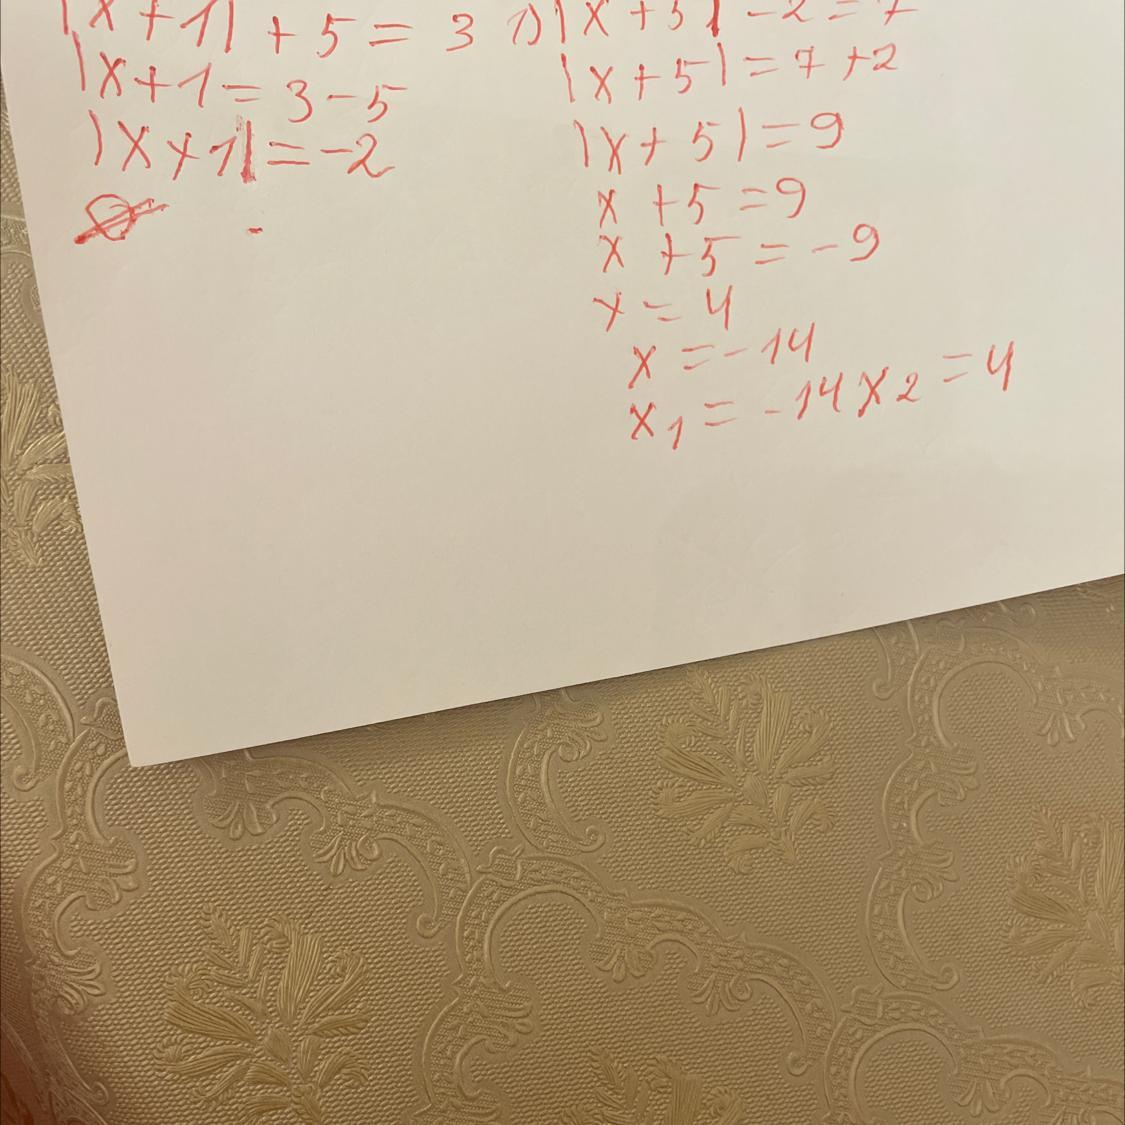 |x+1| + 5 = 3
|x+1 = 3-5
|x+1| = -2
∅
1) |x+5| - 2 = 7
|x+5| = 7+2
|x+5| = 9
x +5 = 9
x +5 = -9
x = 4
x = -14
x1 = -14 x2 = 4